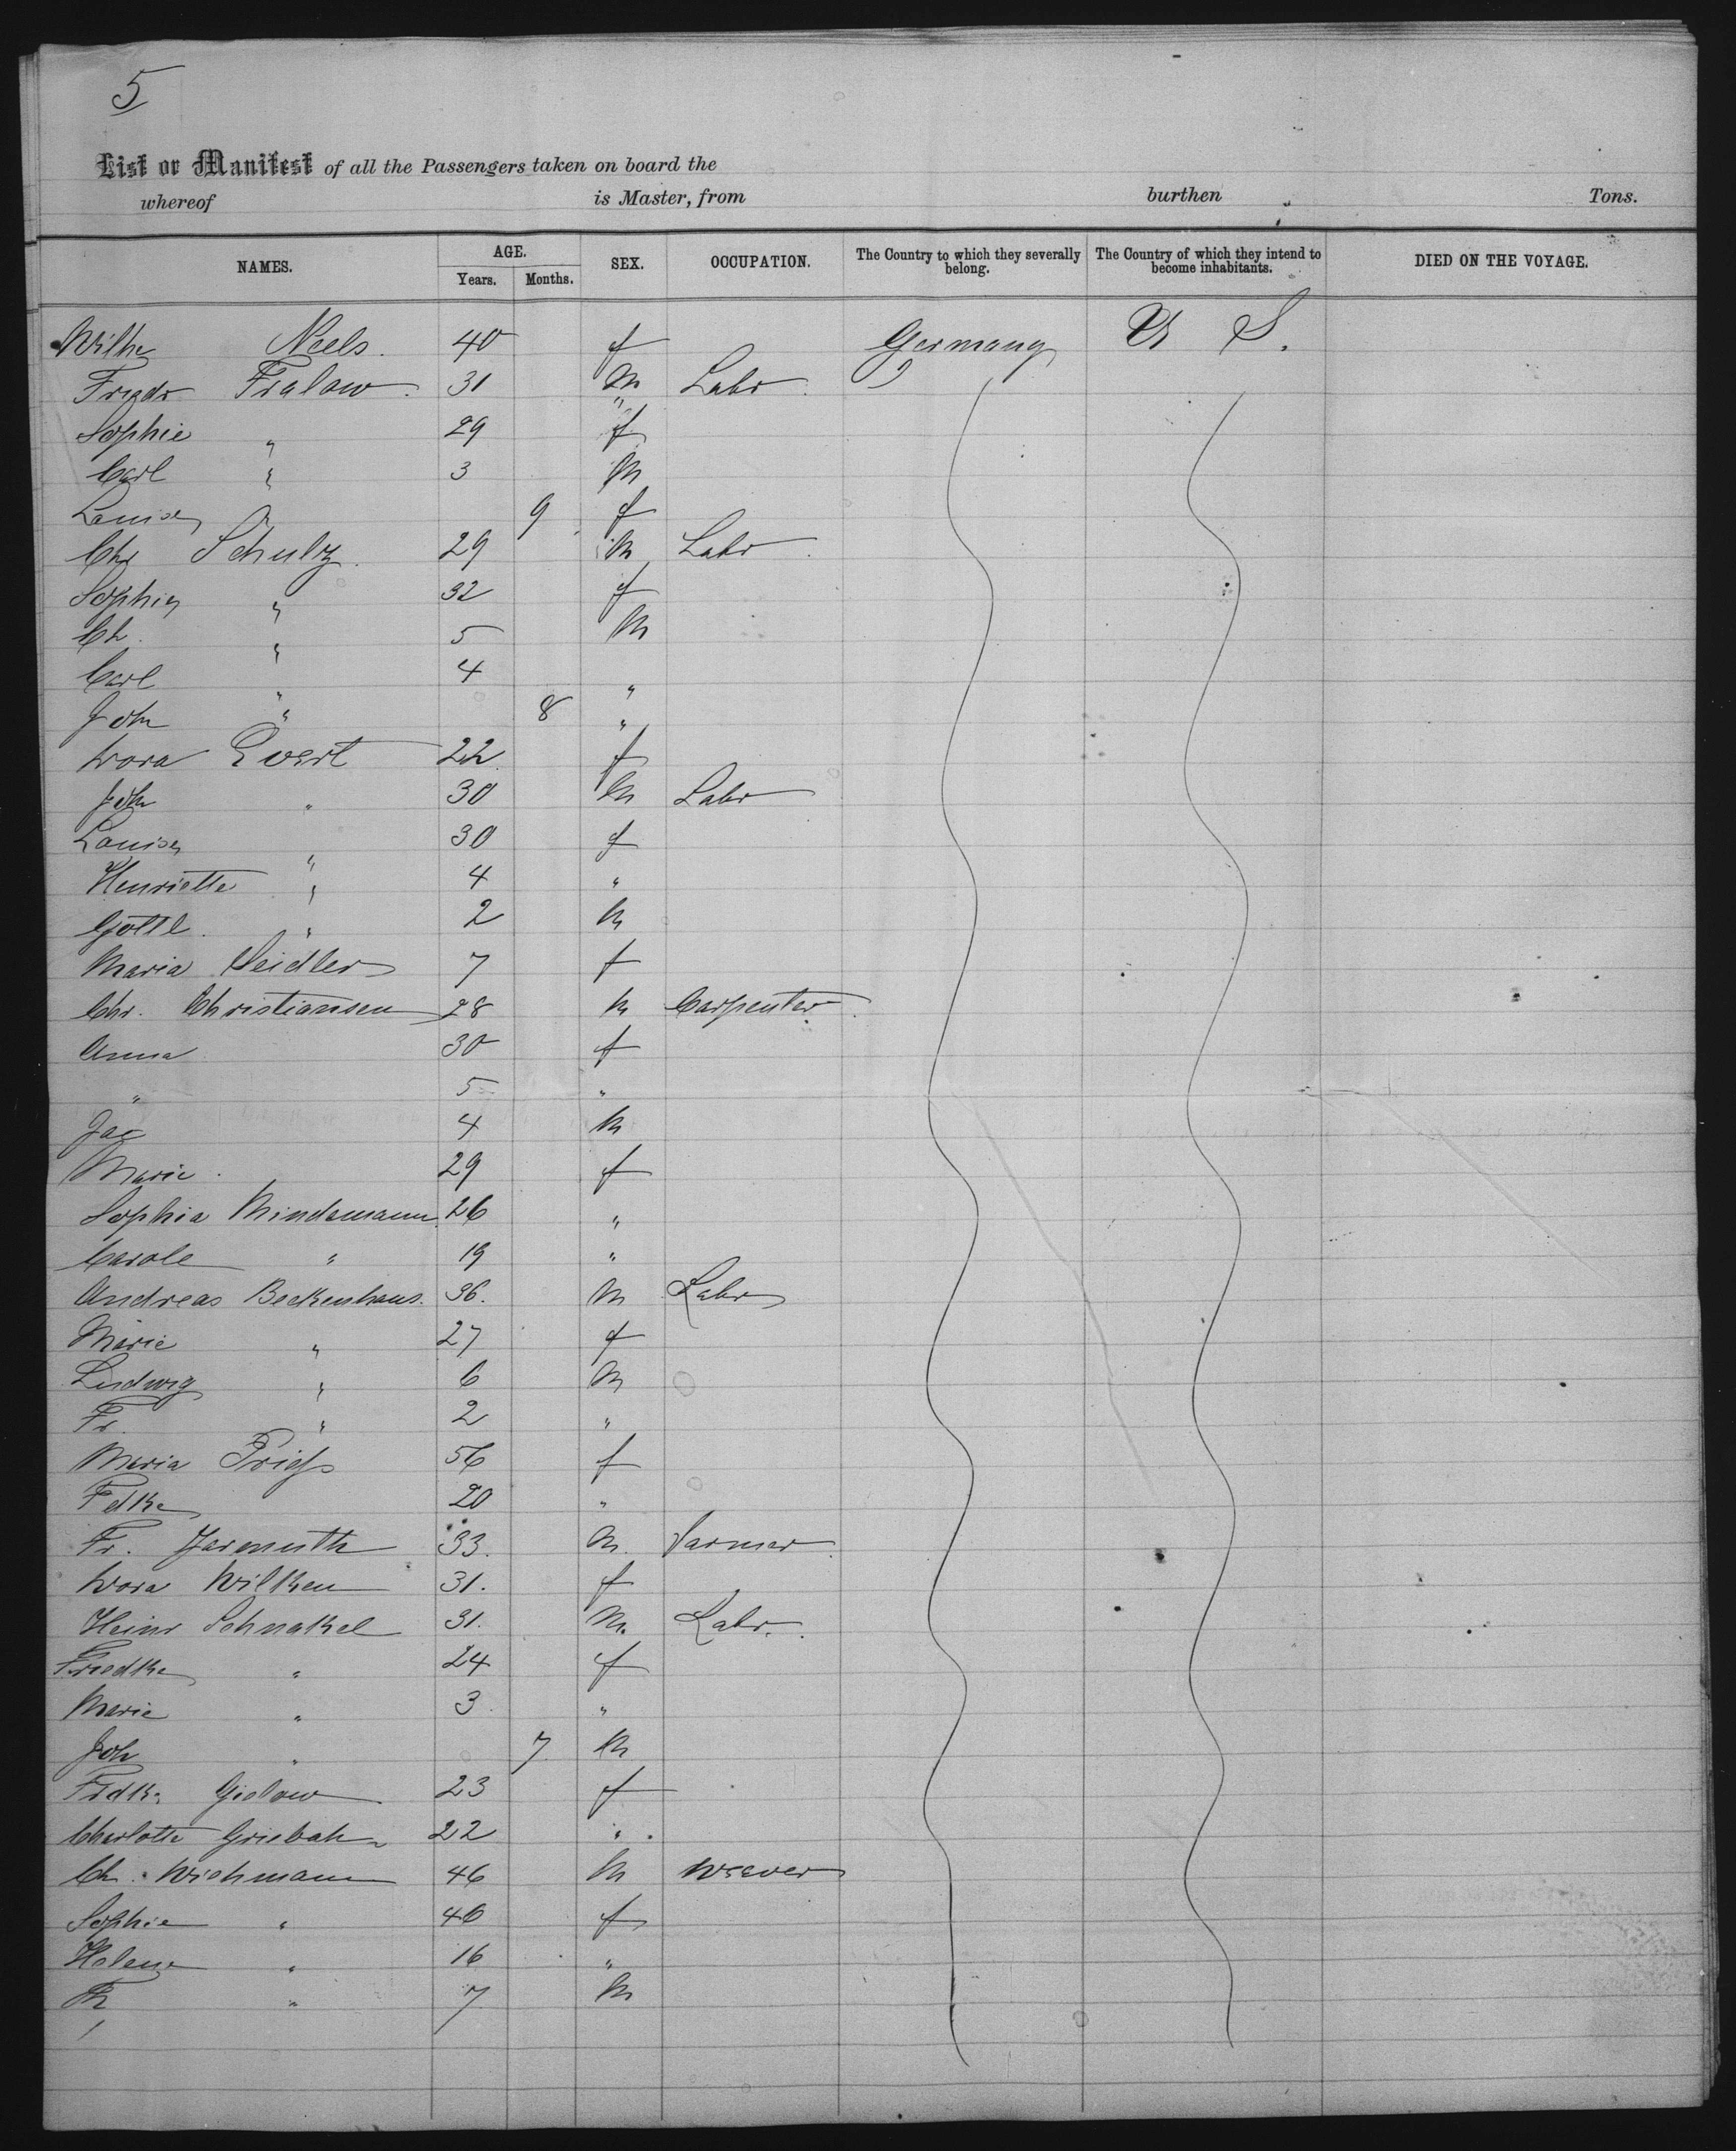 5
List or Manifest of all the Passengers taken on board the
whereof is Master, from burthen Tons.
NAMES. AGE. SEX. OCCUPATION. The Country to which they severally belong. The Country of which they intend to become inhabitants. DIED ON THE VOYAGE.
Years. Months.
Wilhe Neels. 40 f Germany U S.
Friedr Fralow. 31 m Labr.
Sophie " 29 f
Carl " 3 m
Louise " 9 f
Chr Schulz. 29 m Labr.
Sophie " 32 f
Ch. " 5 m
Carl " 4 "
Joh " 8 "
Dora Evert 22 f
Joh " 30 m Labr
Louise " 30 f
Henriette " 4 "
Gottl. " 2 m
Maria Seidler 7 f
Chr. Christiansen 28 m Carpenter.
Anna 30 f
" 5 "
Jac 4 m
Marie. 29 f
Sophia Mindemann 26 "
Carole " 19 "
Andreas Beckenhaus. 36. m Labr
Marie " 27 f
Ludwig " 6 m
Fr. " 2 "
Maria 56 f
Fdke 20 "
Fr. Jarmuth 33. m. Farmer.
Dora Wilken 31. f
Heinr Schnakel 31. m. Labr.
Friedke " 24 f
Marie " 3. "
Joh " 7 m
Frdke Gielow 23 f
Charlotte Griebahn 22 "
Ch. Wichmann 46 m Weever
Sophie " 46 f
Helene " 16 "
" 7 m